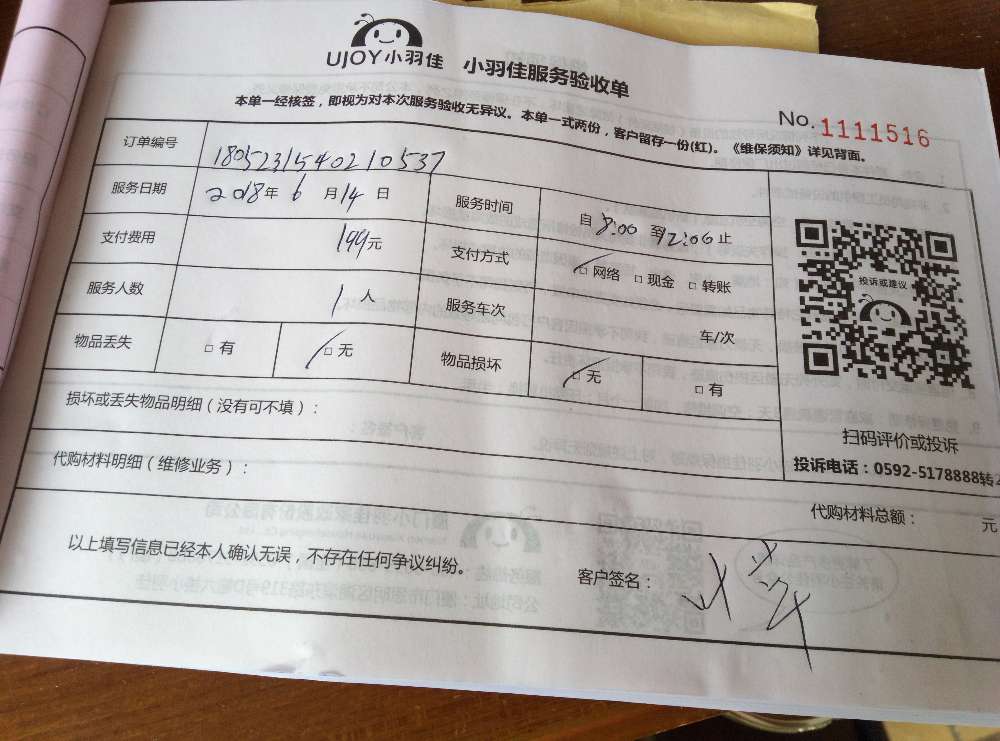 UJOY小羽佳 小羽佳服务验收单
No. 1111516
本单一经核签，即视为对本次服务验收无异议。本单一式两份，客户留存一份(红)。《维保须知》详见背面。
订单编号 1805231540210537
服务日期 2018年6月14日 服务时间 自8:00至12:00止
支付费用 199元 支付方式 □网络 □现金 □转账
服务人数 1人 服务车次 车/次
物品丢失 □有 □无 物品损坏 □无 □有
损坏或丢失物品明细（没有可不填）：
代购材料明细（维修业务）：
投诉或建议
扫码评价或投诉
投诉电话：0592-5178888转2
代购材料总额： 元
以上填写信息已经本人确认无误，不存在任何争议纠纷。 客户签名：